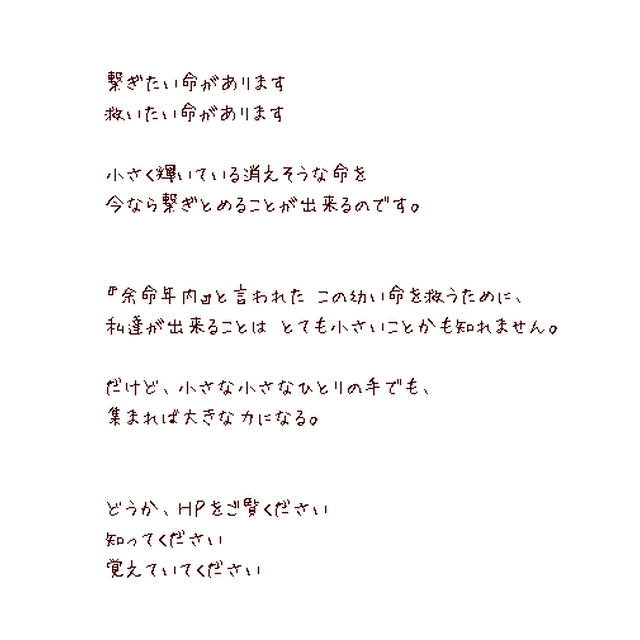 繋ぎたい命があります
救いたい命があります
小さく輝いている消えそうな命を
今なら繋ぎとめることが出来るのです。
『余命年内』と言われた この幼い命を救うために、
私達が出来ることは とても小さいことかも知れません。
だけど、小さな小さなひとりの手でも、
集まれば大きな力になる。
どうか、HPをご覧ください
知ってください
覚えていてください